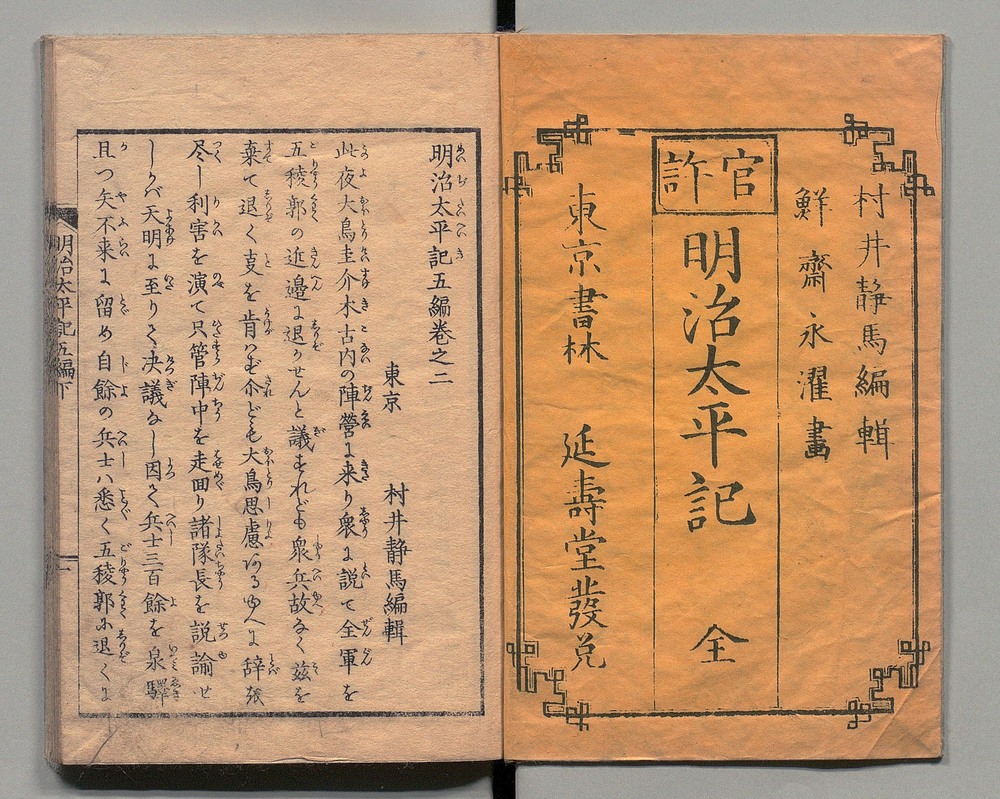 村井静馬編輯
鮮齋永濯畫
官許
明治太平記 全
東京書林 延壽堂發兌
明治太平記五編巻之二
東京 村井静馬編輯
此夜大鳥圭介木古内の陣營に来り衆に説て全軍を
五稜郭の近邊に退かせんと議すれども衆兵故なく茲を
棄て退く事を肯ぜず尒ども大鳥思慮あるゆへに辞を
尽し利害を演て只管陣中を走回り諸隊長を説諭せ
しかバ天明に至りて决議なし因て兵士三百餘を泉驛
且つ矢不来に留め自餘の兵士ハ悉く五稜郭に退くに
明治太平記五編下
一